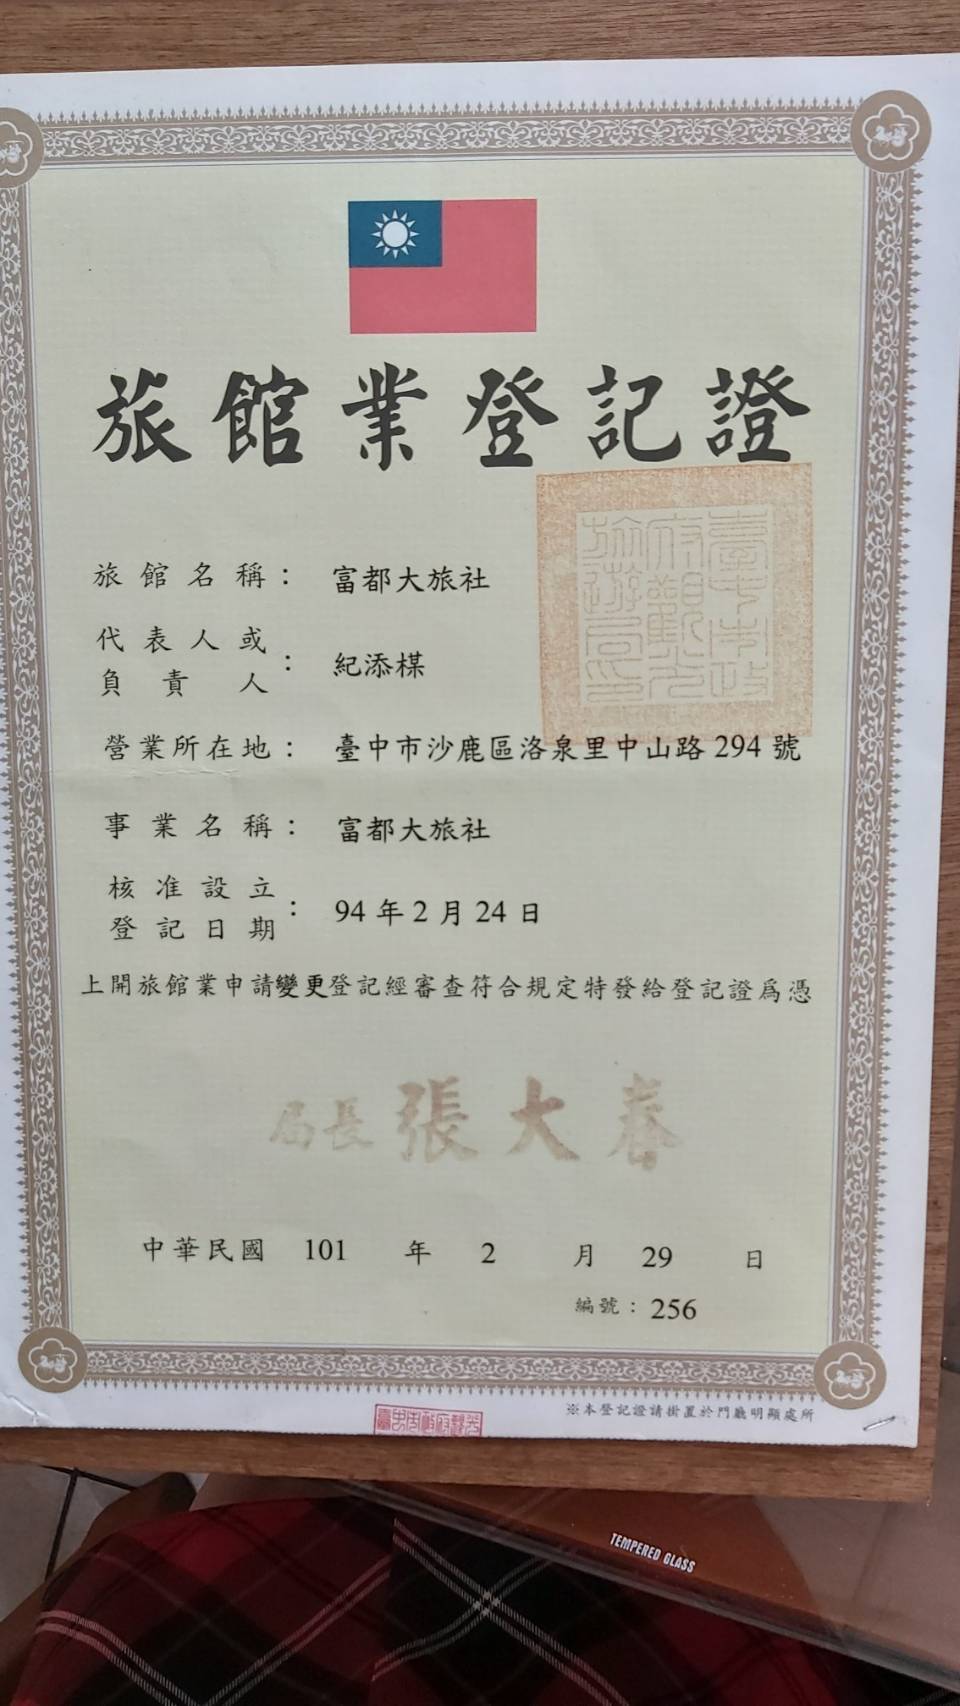 旅館業登記證
旅館名稱： 富都大旅社
代表人或
負責人： 紀添楳
營業所在地： 臺中市沙鹿區洛泉里中山路294號
事業名稱： 富都大旅社
核准設立
登記日期： 94年2月24日
上開旅館業申請變更登記經審查符合規定特發給登記證為憑
臺中市政
府觀光
旅遊局印
局長 張大春
中華民國 101 年 2 月 29 日
編號：256
※本登記證請掛置於門廳明顯處所
TEMPERED GLASS